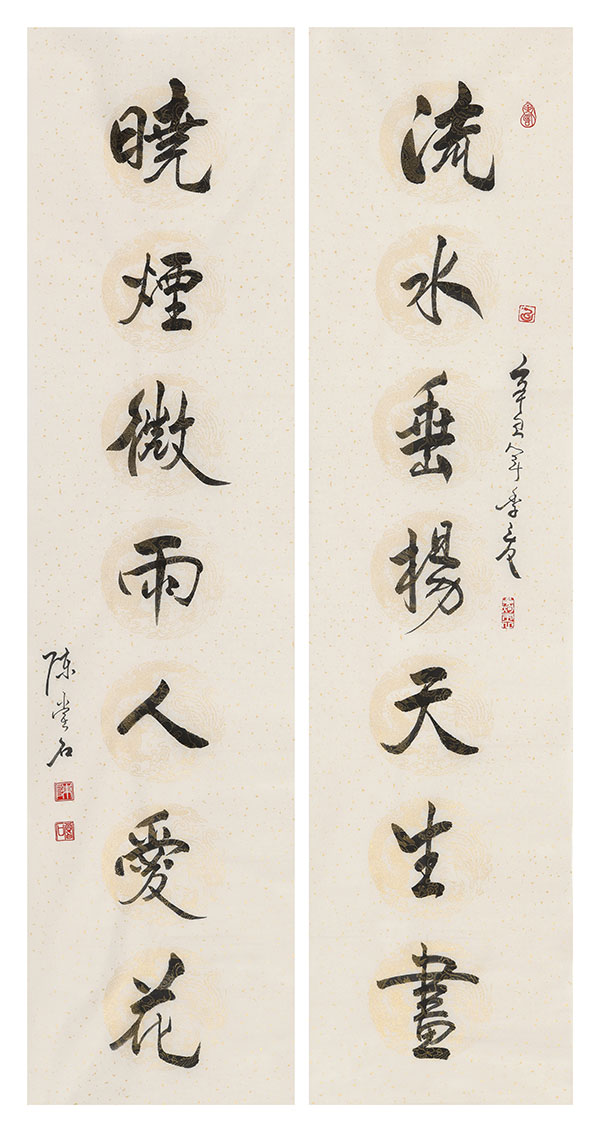 流水垂楊天生畫
辛丑年季夏
曉煙微雨人愛花
陳堂石